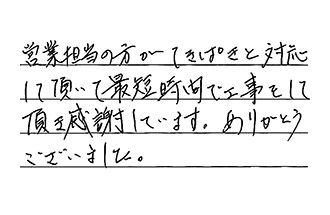 営業担当の方がてきぱきと対応
して頂いて最短時間で工事をして
頂き感謝しています。ありがとう
ございました。